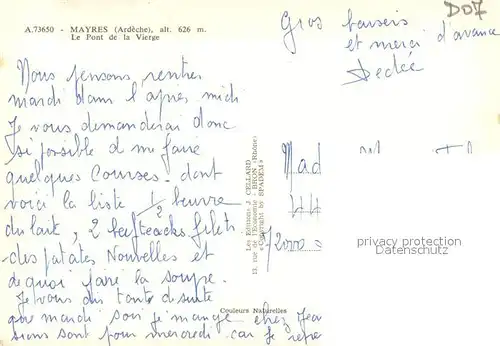 A.73650 - MAYRES (Ardèche), alt. 626 m.
Le Pont de la Vierge
DO7
Gros baisers
et merci d'avance
Dédée
Nous pensons rentrer
mardi dans l'après midi
Je vous demanderai donc
si possible de me faire
quelques courses. dont
voici la liste 1/2 beurre
du lait, 2 beefteacks filets
des patates Nouvelles et
de quoi faire la soupe.
Je vous dis tout de suite
que mardi soir je mange chez Jea
sions sont pour mercredi car je repr
Les Editions J. CELLARD
13, rue de l'Economie - BRON (Rhône)
« Copyright by SPADEM »
Mad
44
72000
Couleurs Naturelles
privacy protection
Datenschutz